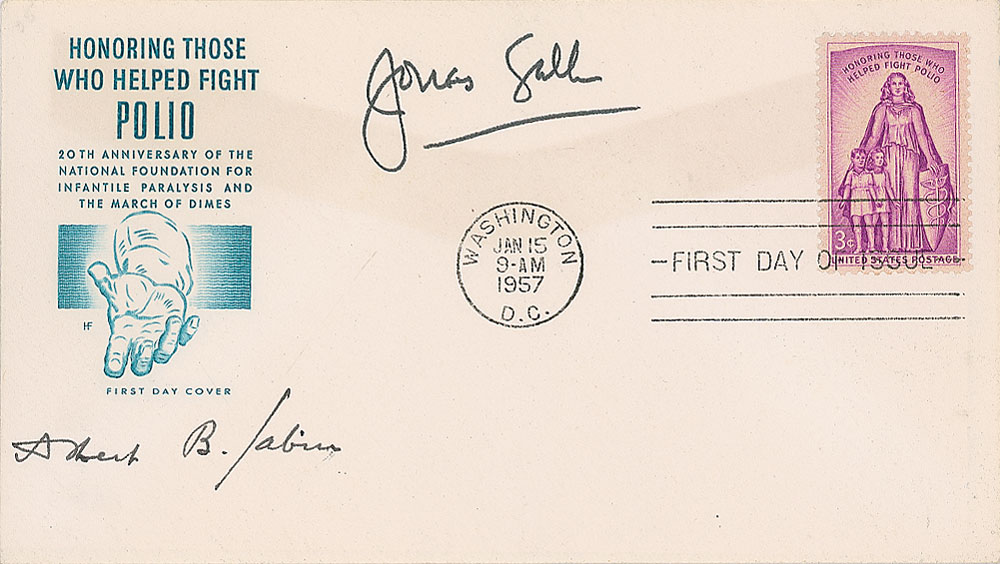 HONORING THOSE
WHO HELPED FIGHT
POLIO
20TH ANNIVERSARY OF THE
NATIONAL FOUNDATION FOR
INFANTILE PARALYSIS AND
THE MARCH OF DIMES
HF
FIRST DAY COVER
Jonas Salk
Albert B. Sabin
WASHINGTON
JAN 15
9-AM
1957
D.C.
HONORING THOSE WHO
HELPED FIGHT POLIO
3¢
UNITED STATES POSTAGE
FIRST DAY OF ISSUE